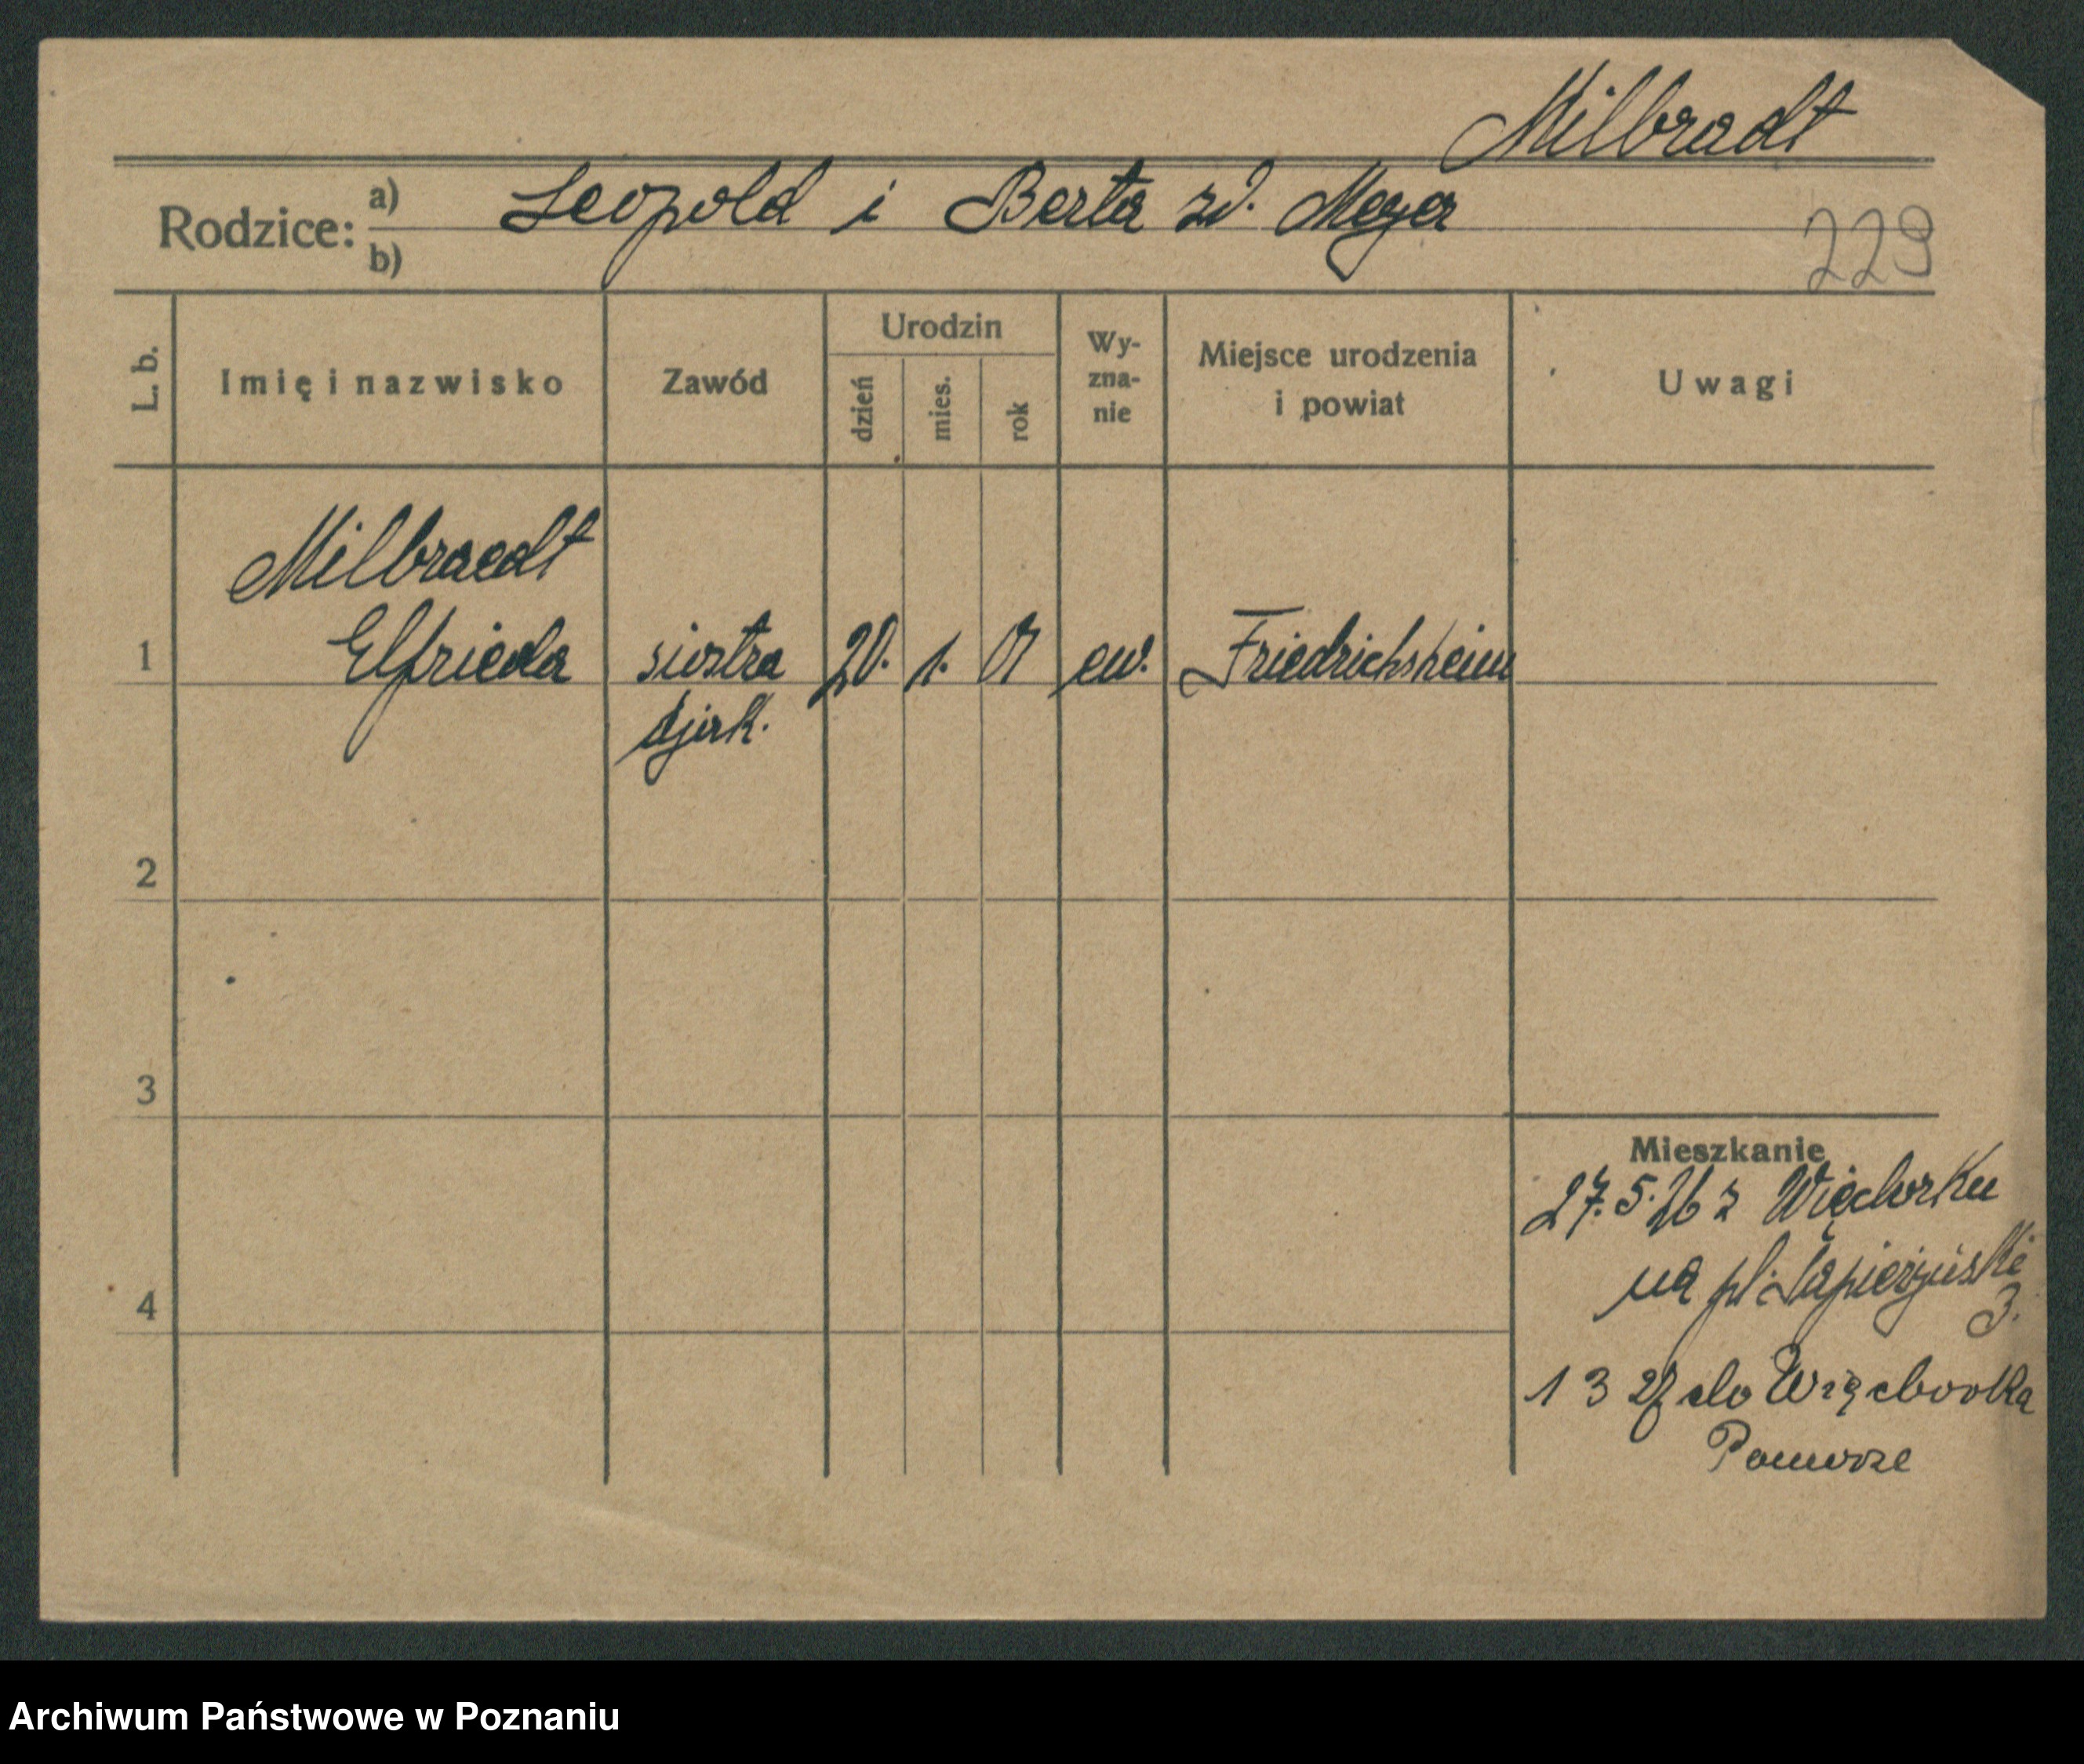 Milbradt
Rodzice: a) b) Leopold i Berta zd. Meyer
229
L. b.
Imię i nazwisko
Zawód
Urodzin
dzień
mies.
rok
Wy-
zna-
nie
Miejsce urodzenia
i powiat
Uwagi
Milbraedt
1 Elfrieda siostra 20. 1. 01 ew. Friedrichsheim
djak.
2
3
4
Mieszkanie
27.5.26 z Więcborku
na pl. Sapieżyński
3.
1 3 27 do Więcborka
Pomorze
Archiwum Państwowe w Poznaniu